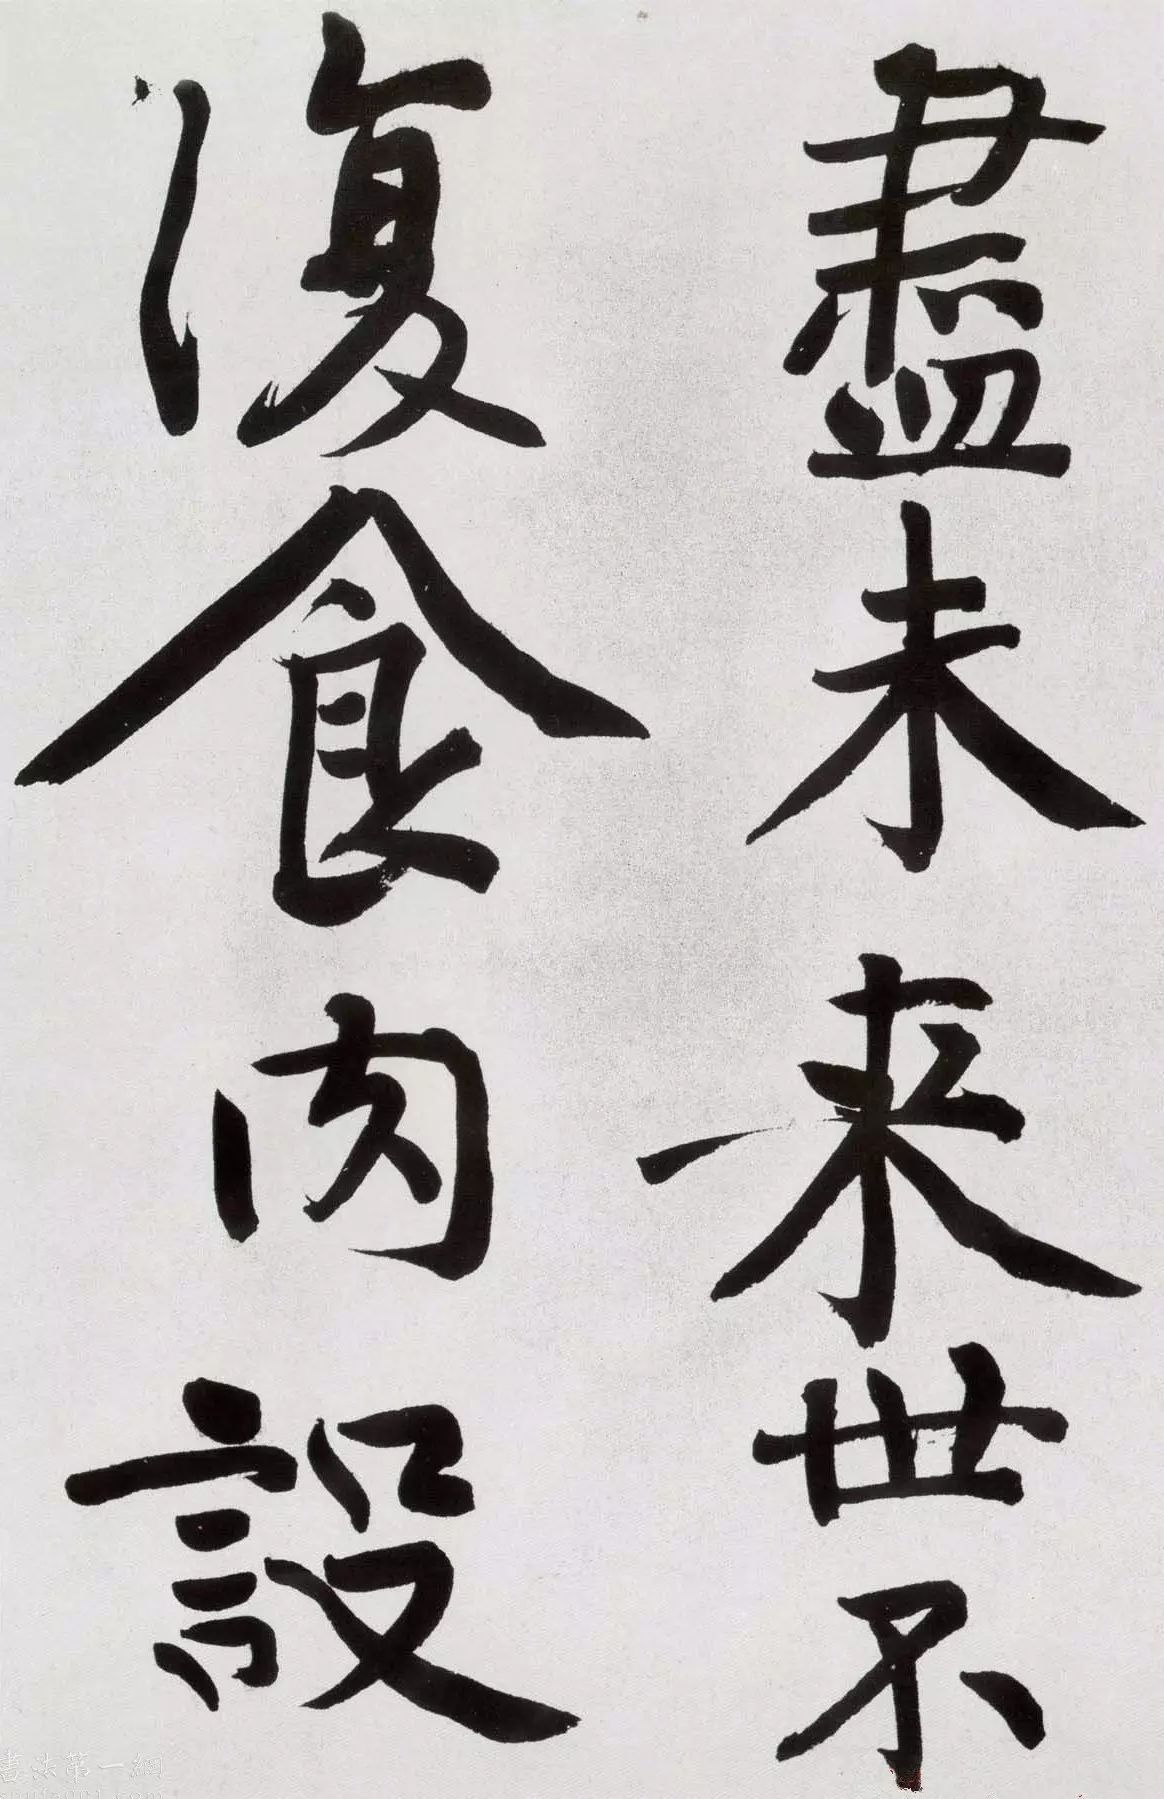 盡未来世不
復食肉設
書法第一網